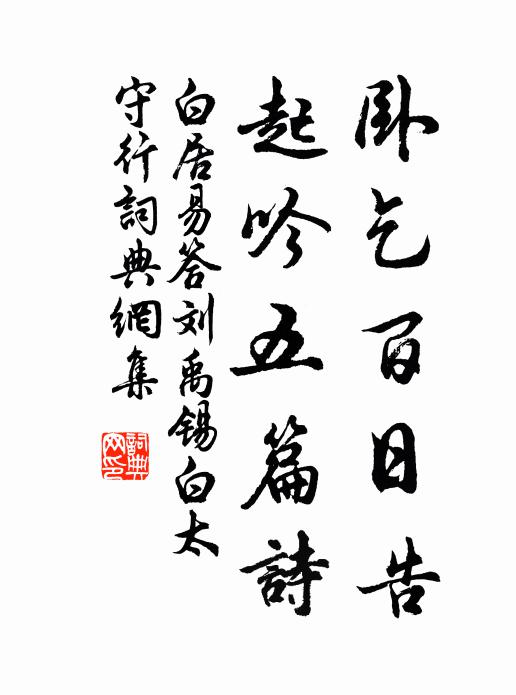 卧乞百日告
起吟五篇詩
白居易答刘禹錫白太
守行詞典網集
詞典網印